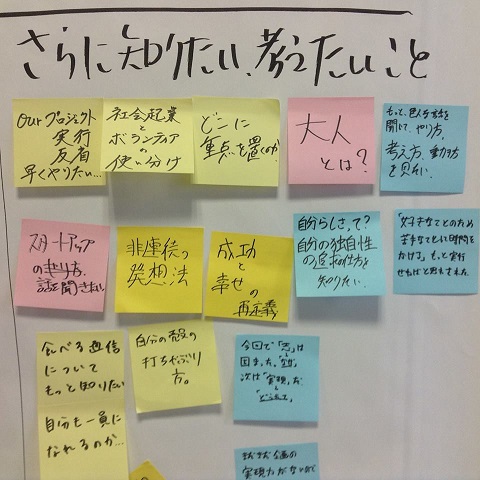 さらに知りたい、考えたいこと
Our プロジェクト
実行
反省
早くやりたい…
社会起業
と
ボランティア
の
使い分け
どこに
重点を置くのか
大人
とは?
もっと、色んな話を
聞いて、やり方、
考え方、動き方
を見たい。
スタートアップ
の走り方、
話を聞きたい
非連続の
発想法
成功
と
幸せ
の
再定義
自分らしさ、って?
自分の独自性
の追求の仕方を
知りたい。
「好きなことのため
苦手なことに時間を
かけろ」もっと実行
せねばと思わされた。
食べる通信
について
もっと知りたい
自分の殻の
打ちやぶり
方。
今回で「志」は
固まった。
次は「実現」が
「どうたて」
自分も一員に
なれるのか…
まだまだ企画の
実現力がないので